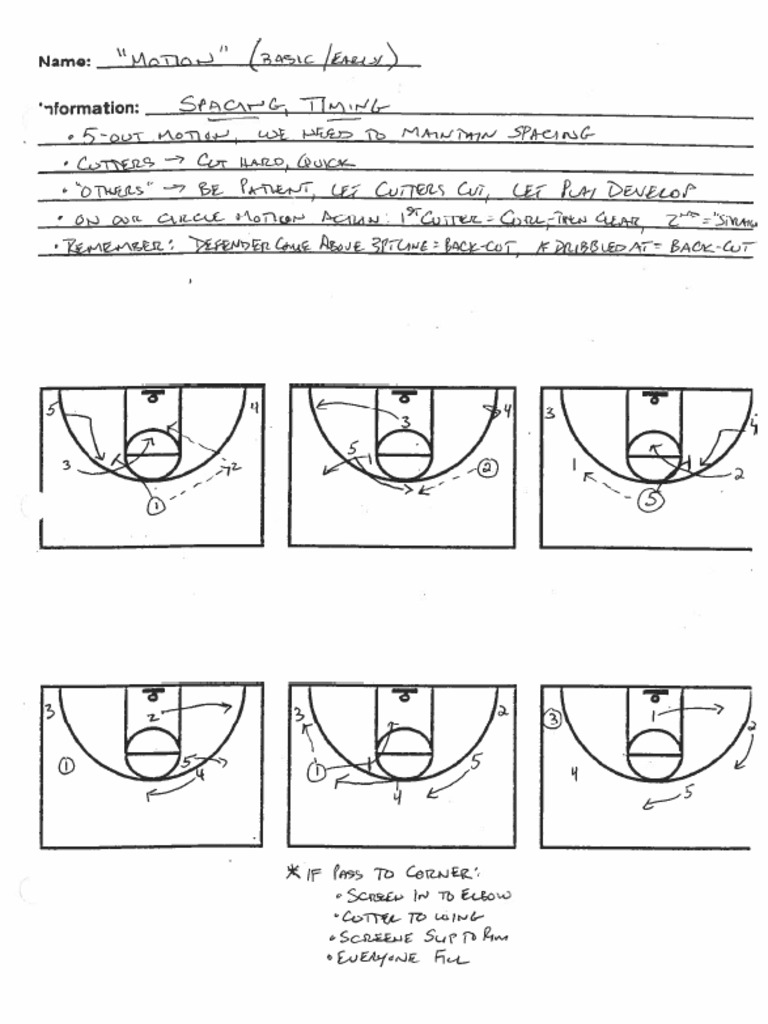 Name: "MOTION" (BASIC/EARLY)
Information: SPACING, TIMING
• 5-OUT MOTION, WE NEED TO MAINTAIN SPACING
• CUTTERS → CUT HARD, QUICK
• "OTHERS" → BE PATIENT, LET CUTTERS CUT, LET PLAY DEVELOP
• ON OUR CIRCLE MOTION ACTION: 1ST CUTTER = CURL, THEN CLEAR, 2ND =
• REMEMBER: DEFENDER COME ABOVE 3PT LINE = BACK-CUT, IF DRIBBLED AT = BACK-CUT
5 4 3 2 1
3 4 5 2
3 4 1 2 5
3 2 1 5 4
3 2 1 5 4
3 1 2 4 5
* IF PASS TO CORNER:
• SCREEN IN TO ELBOW
• CUTTER TO WING
• SCREENE SLIP TO RIM
• EVERYONE FILL